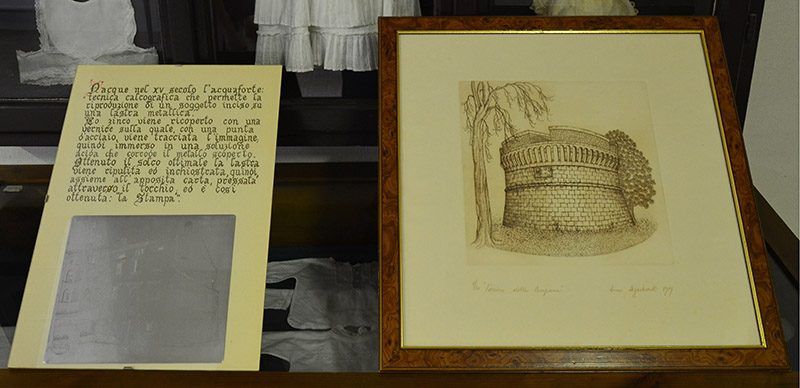 Nacque nel XV secolo l'acquaforte:
tecnica calcografica che permette la
riproduzione di un soggetto inciso su
una lastra metallica.
Lo zinco viene ricoperto con una
vernice sulla quale, con una punta
d'acciaio, viene tracciata l'immagine,
quindi immerso in una soluzione
acida che corrode il metallo scoperto.
Ottenuto il solco ottimale la lastra
viene ripulita ed inchiostrata, quindi,
assieme all'apposita carta, pressata
attraverso il torchio, ed è così
ottenuta: la Stampa".
"Torre della